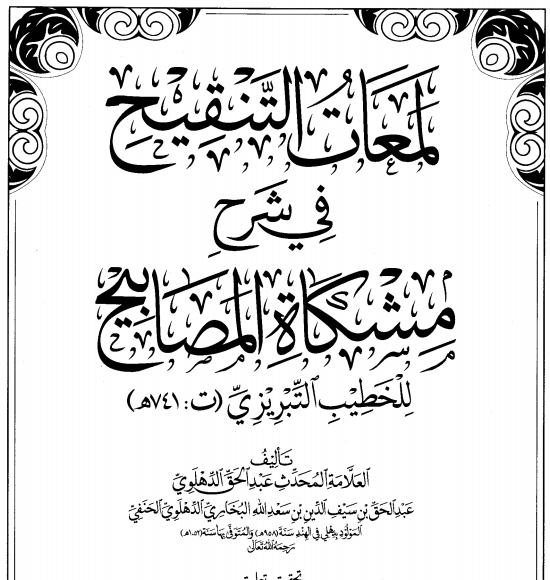 لَمَعَاتُ التَّنْقِيحِ
فِي شَرْحِ
مِشْكَاةِ المَصَابِيحِ
لِلْخَطِيْبِ التَّبْرِيْزِيِّ (ت: ٧٤١هـ)
تَأْلِيْفُ
العَلَّامَةِ المُحَدِّثِ عَبْدِ الحَقِّ الدِّهْلَوِيِّ
عَبْدِ الحَقِّ بْنِ سَيْفِ الدِّيْنِ بْنِ سَعْدِ اللهِ البُخَارِيِّ الدِّهْلَوِيِّ الحَنَفِيِّ
المَوْلُوْدِ بِدِهْلِي فِي الهِنْدِ سَنَةَ (٩٥٨هـ) وَالمُتَوَفَّى بِهَا سَنَةَ (١٠٥٢هـ)
رَحِمَهُ اللهُ تَعَالَى